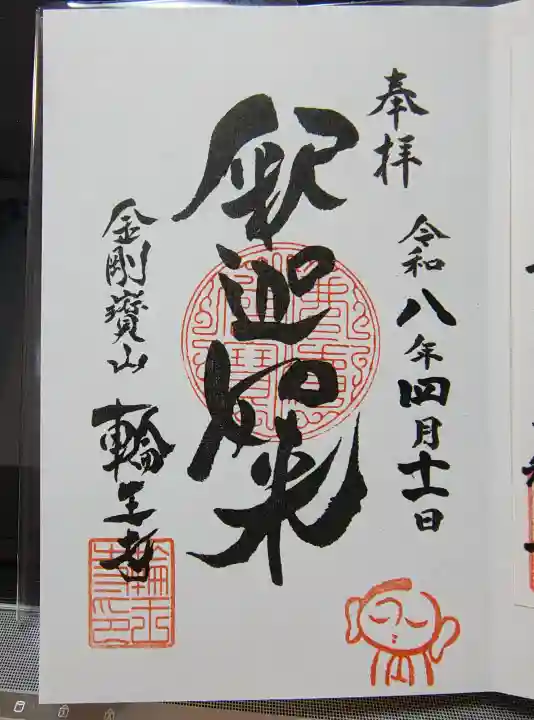 奉拝
令和八年四月十一日
釈迦如来
金剛寶山 輪王寺